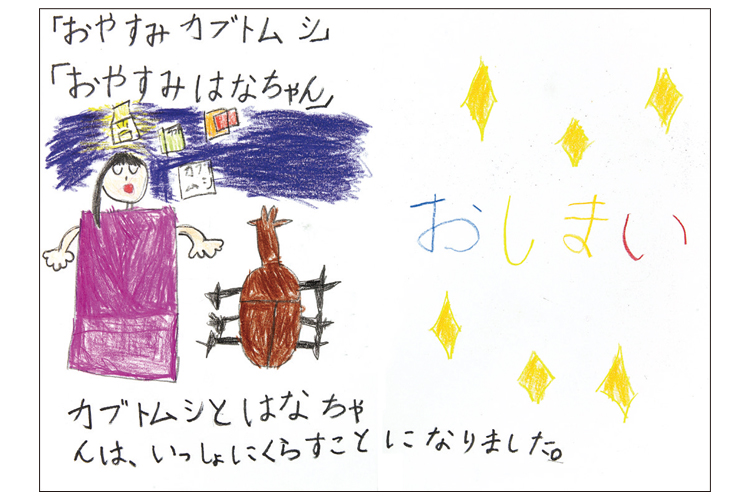 「おやすみ カブトムシ」
「おやすみ はなちゃん」
カブ
ムシ
おしまい
カブトムシと はなちゃ
んは、いっしょにくらすこと になりました。